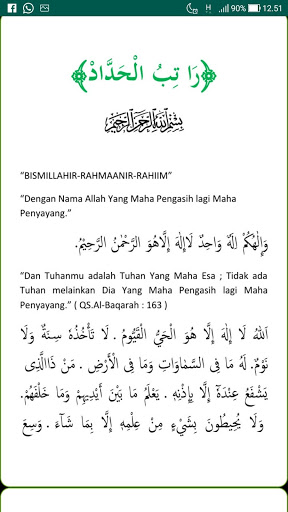 H 90% 12.51
﴿رَا تِبُ الْحَدَّادْ﴾
بِسْمِ اللهِ الرَّحْمٰنِ الرَّحِيْمِ
“BISMILLAHIR-RAHMAANIR-RAHIIM”
“Dengan Nama Allah Yang Maha Pengasih lagi Maha
Penyayang.”
وَإِلٰهُكُمْ إِلٰهٌ وَاحِدٌ لَاإِلٰهَ إِلَّاهُوَ الرَّحْمٰنُ الرَّحِيْمُ.
“Dan Tuhanmu adalah Tuhan Yang Maha Esa ; Tidak ada
Tuhan melainkan Dia Yang Maha Pengasih lagi Maha
Penyayang.” ( QS.Al-Baqarah : 163 )
اَللهُ لَا إِلٰهَ إِلَّا هُوَ الْحَيُّ الْقَيُّومُ . لَا تَأْخُذُهُ سِنَةٌ وَلَا
نَوْمٌ. لَهُ مَا فِى السَّمَاوَاتِ وَمَا فِى الْأَرْضِ . مَنْ ذَاالَّذِى
يَشْفَعُ عِنْدَهُ إِلَّا بِإِذْنِهِ . يَعْلَمُ مَا بَيْنَ أَيْدِيهِمْ وَمَا خَلْفَهُمْ.
وَلَا يُحِيطُونَ بِشَيْءٍ مِنْ عِلْمِهِ إِلَّا بِمَا شَآءَ . وَسِعَ